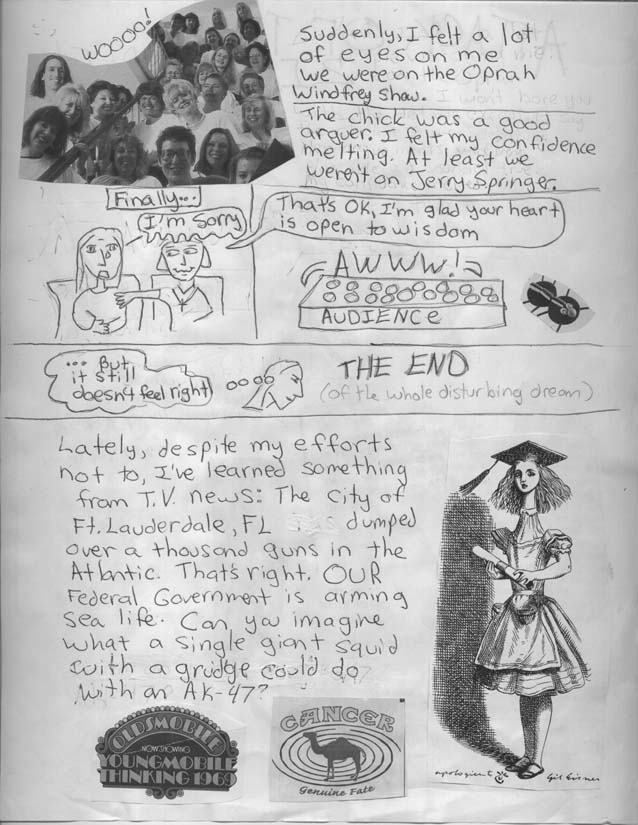 WOOOO!
Suddenly, I felt a lot
of eyes on me
we were on the Oprah
Windfrey Show.
The chick was a good
arguer. I felt my confidence
melting. At least we
weren't on Jerry Springer.
Finally...
I'm sorry
That's OK, I'm glad your heart
is open to wisdom
AWWW!
AUDIENCE
... But
it still
doesn't feel right
THE END
(of the whole disturbing dream)
Lately, despite my efforts
not to, I've learned something
from T.V. news: The city of
Ft. Lauderdale, FL dumped
over a thousand guns in the
Atlantic. That's right. OUR
Federal Government is arming
sea life. Can you imagine
what a single giant squid
with a grudge could do
with an AK-47?
OLDSMOBILE
NOW SHOWING
YOUNGMOBILE
THINKING 1969
CANCER
Genuine Fate